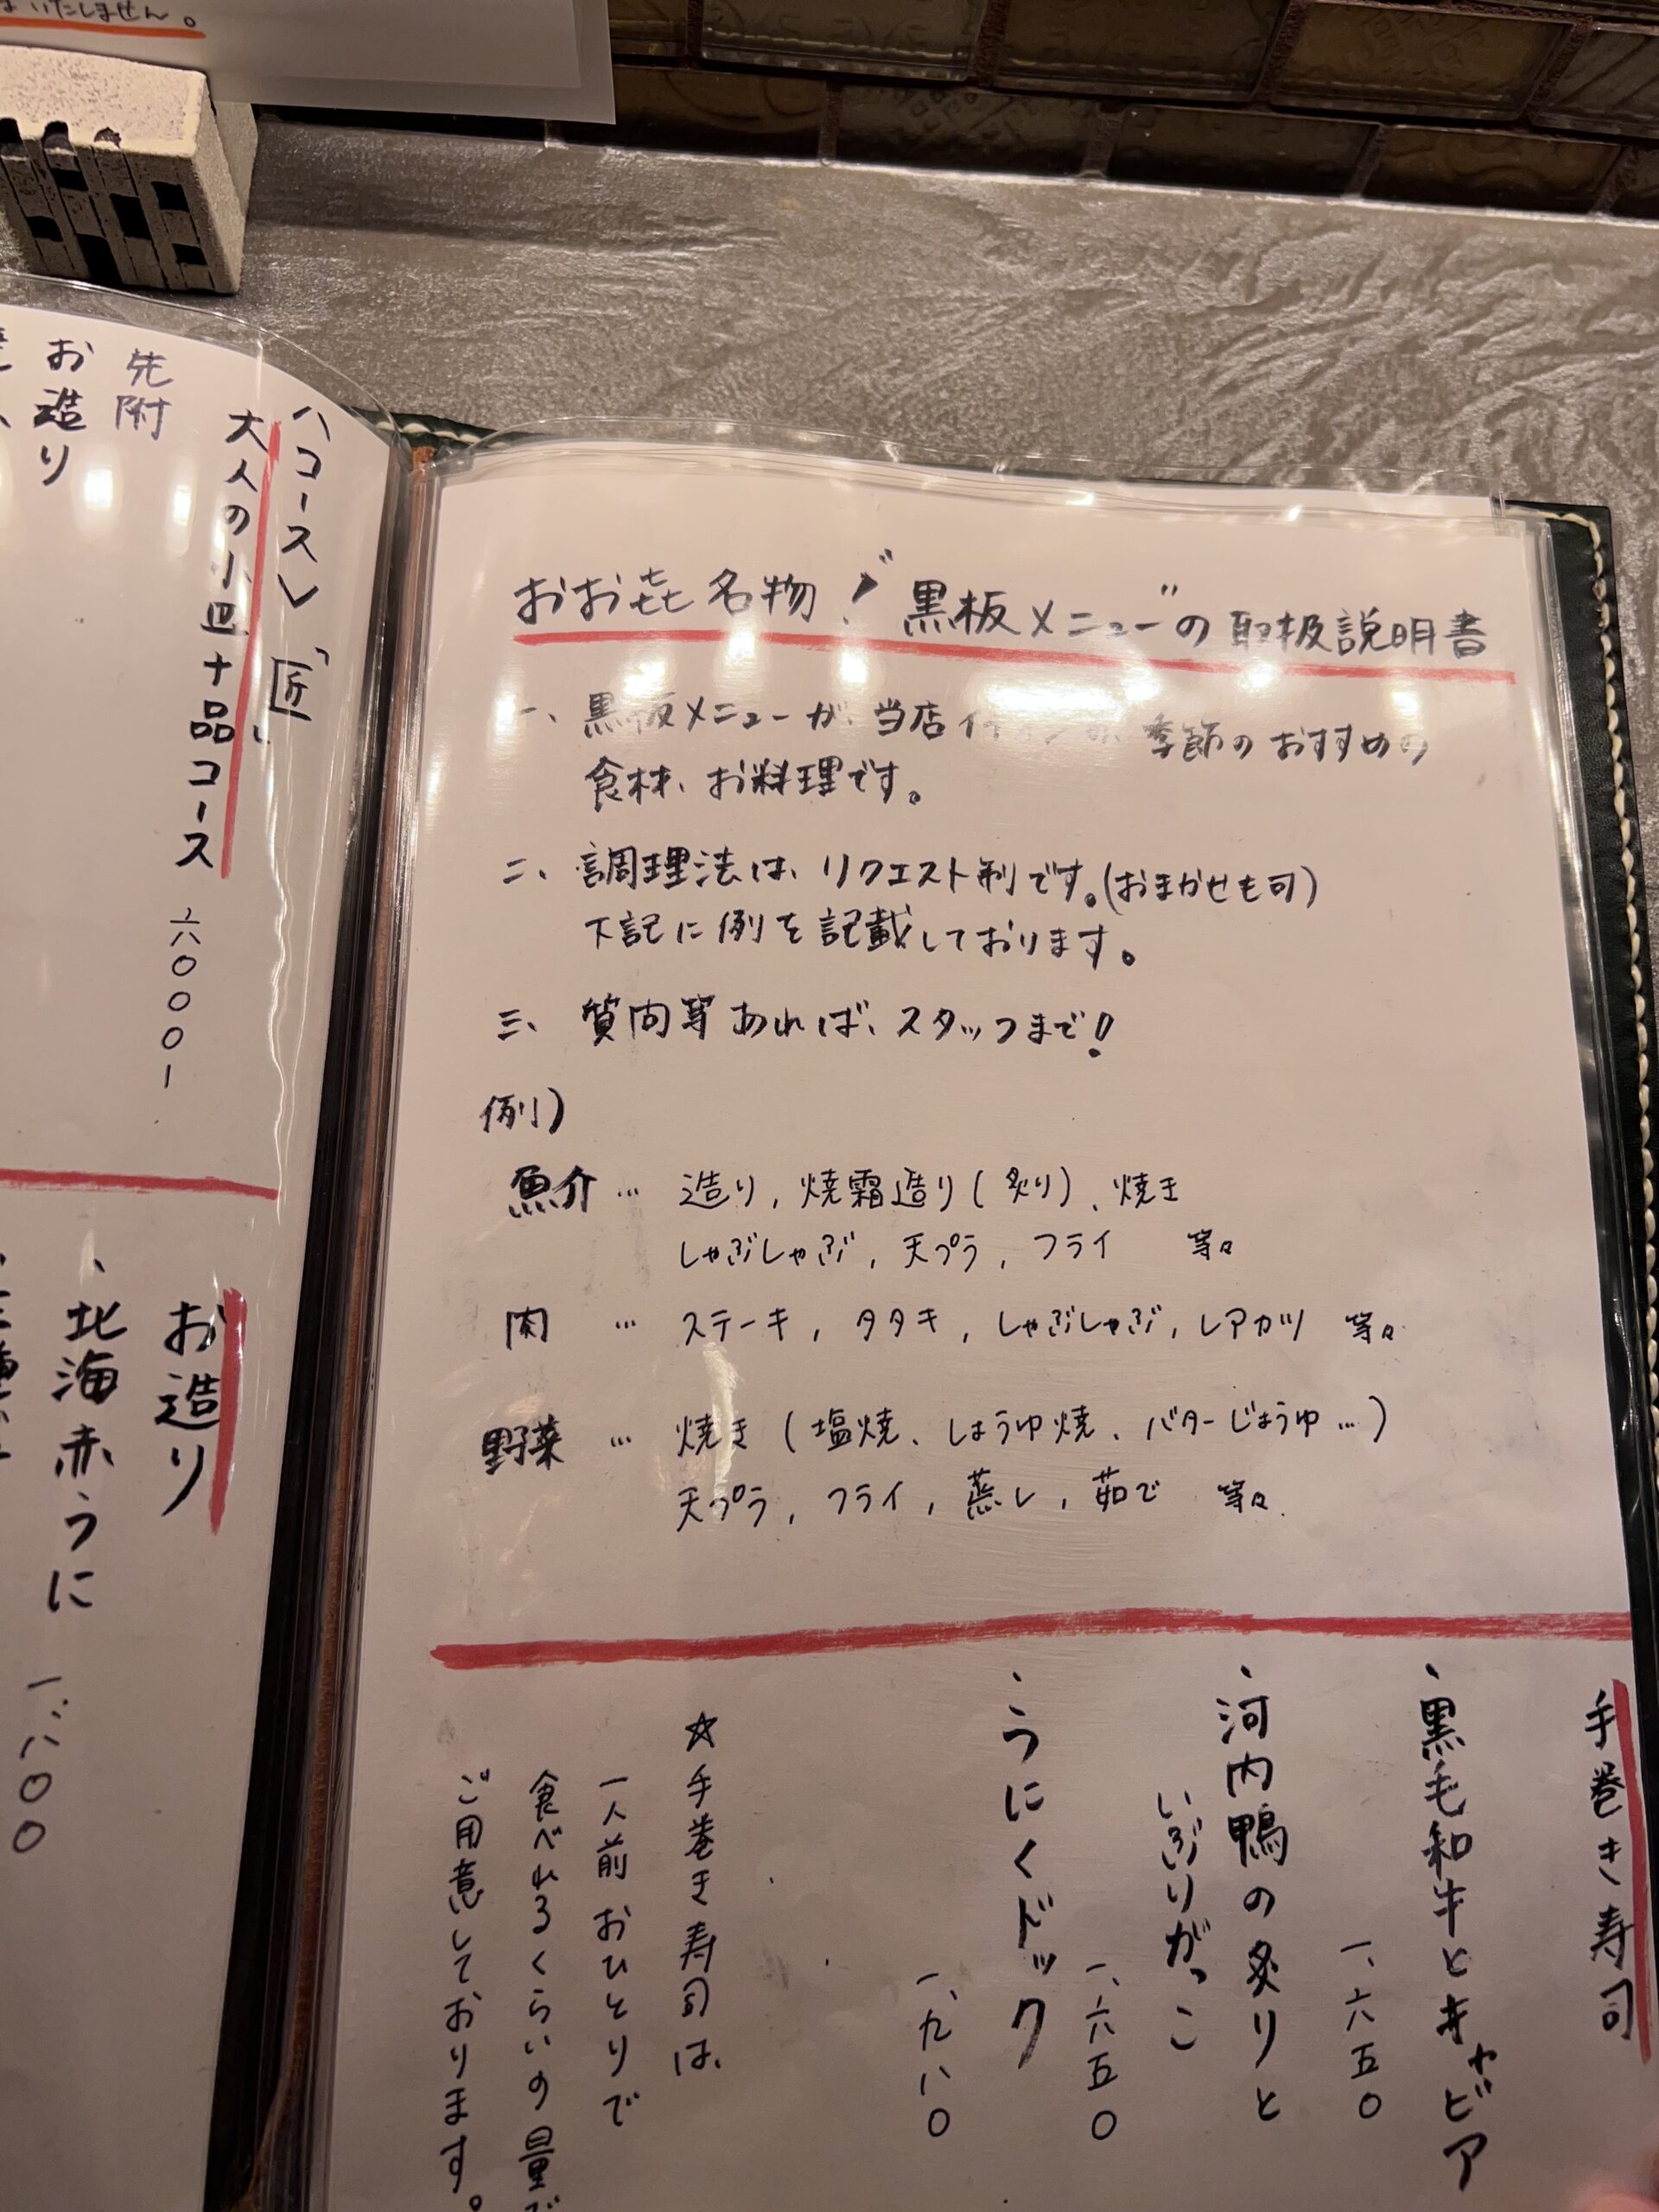 いたしません。
おお㐂名物！"黒板メニュー"の取扱説明書
一、黒板メニューが、当店 季節のおすすめの
食材、お料理です。
二、調理法は、リクエスト制です。(おまかせも可)
下記に例を記載しております。
三、質問等あれば、スタッフまで!
例)
魚介 … 造り, 焼霜造り(炙り)、焼き
しゃぶしゃぶ, 天プラ, フライ 等々
肉 … ステーキ, タタキ, しゃぶしゃぶ, レアカツ 等々
野菜 … 焼き (塩焼、しょうゆ焼、バターじょうゆ…)
天プラ, フライ, 蒸し, 茹で 等々
手巻き寿司
、黒毛和牛とキャビア
一、六五〇
、河内鴨の炙りと
いぶりがっこ
一、六五〇
、うにくドック
一、九八〇
☆手巻き寿司は、
一人前おひとりで
食べれるくらいの量で
ご用意しております。
〈コース〉「匠」
大人の小皿十品コース
六〇〇〇ー
先附
お造り
お造り
、北海赤うに
一、八〇〇